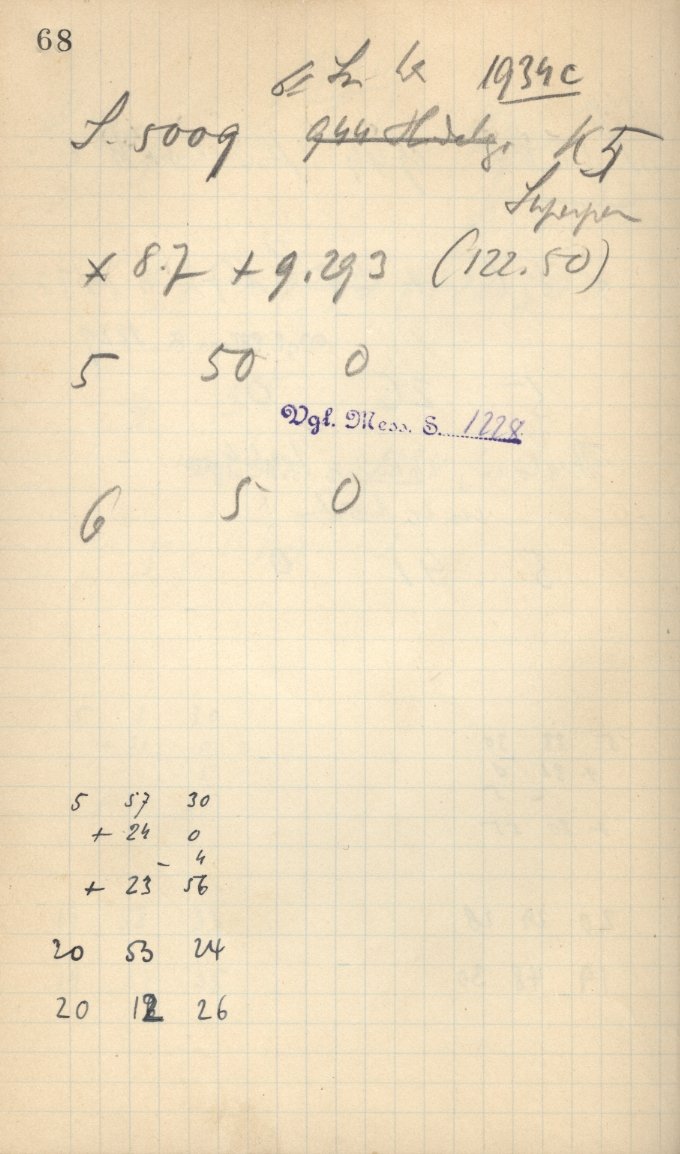 68
1934c
S. 5009 944 Hidalgo K5
x 8.7 + 9.293 (122.50)
5 50 0
Vgl. Mess. S. 1228
6 5 0
5 57 30
+ 24 0
- 4
+ 23 56
20 53 24
20 12 26